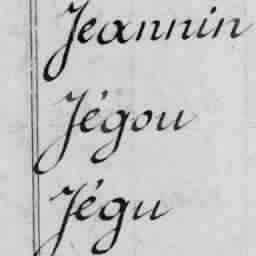 Jeannin
Jégou
Jégu